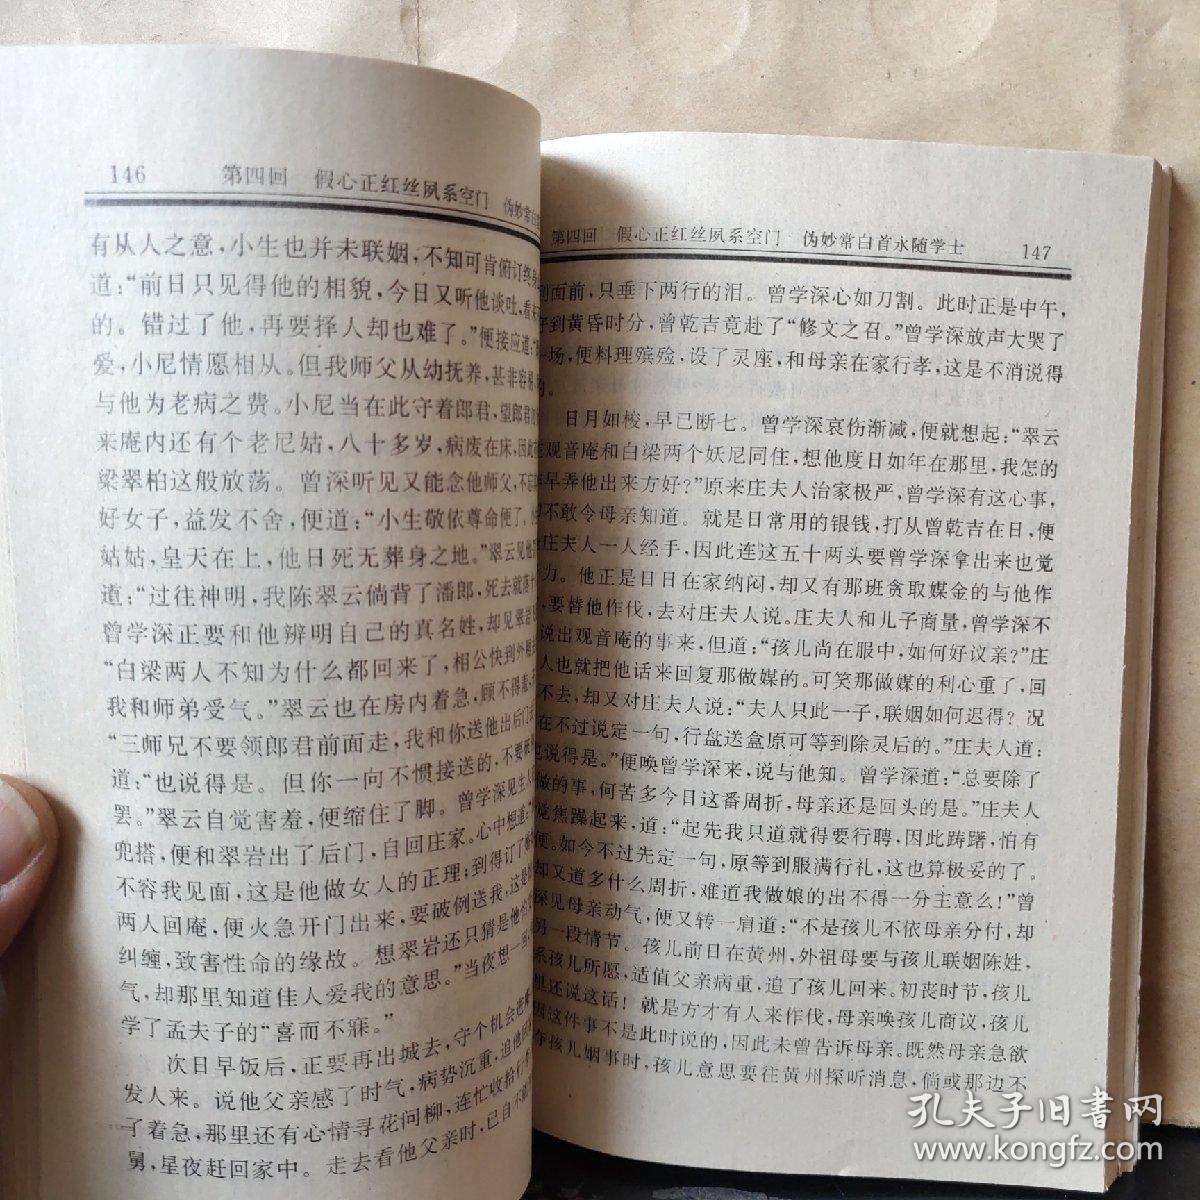 146 第四回 假心正红丝夙系空门 伪妙常白
有从人之意，小生也并未联姻，不知可肯俯订终
道：“前日只见得他的相貌，今日又听他谈吐，看
的。错过了他，再要择人却也难了。”便接应道：
爱，小尼情愿相从。但我师父从幼抚养，甚非容易
与他为老病之费。小尼当在此守着郎君，望郎君
来庵内还有个老尼姑，八十多岁，病废在床，因此
梁翠柏这般放荡。曾深听见又能念他师父，不忘
好女子，益发不舍，便道：“小生敬依尊命便了。
姑姑，皇天在上，他日死无葬身之地。”翠云见他
道：“过往神明，我陈翠云倘背了潘郎，死去就落
曾学深正要和他辨明自己的真名姓，却见翠岩
“白梁两人不知为什么都回来了，相公快到外厢
我和师弟受气。”翠云也在房内着急，顾不得羞
“三师兄不要领郎君前面走，我和你送他出后门
道：“也说得是。但你一向不惯接送的，不要
罢。”翠云自觉害羞，便缩住了脚。曾学深见生
兜搭，便和翠岩出了后门，自回庄家。心中想道：
不容我见面，这是他做女人的正理；到得订了
两人回庵，便火急开门出来，要破例送我，这是
纠缠，致害性命的缘故。想翠岩还只猜是他怕
气，却那里知道佳人爱我的意思。”当夜想一回
学了孟夫子的“喜而不寐。”
次日早饭后，正要再出城去，守个机会进庵
发人来。说他父亲感了时气，病势沉重，追他回
了着急，那里还有心情寻花问柳，连忙收拾行
舅，星夜赶回家中。走去看他父亲时，已自不
第四回 假心正红丝夙系空门 伪妙常白首永随学士 147
到面前，只垂下两行的泪。曾学深心如刀割。此时正是中午，
到黄昏时分，曾乾吉竟赴了“修文之召。”曾学深放声大哭了
一场，便料理殡殓，设了灵座，和母亲在家行孝，这是不消说得
的。
日月如梭，早已断七。曾学深哀伤渐减，便就想起：“翠云
在观音庵和白梁两个妖尼同住，想他度日如年在那里，我怎的
早早弄他出来方好？”原来庄夫人治家极严，曾学深有这心事，
不敢令母亲知道。就是日常用的银钱，打从曾乾吉在日，便
庄夫人一人经手，因此连这五十两头要曾学深拿出来也觉
力。他正是日日在家纳闷，却又有那班贪取媒金的与他作
，要替他作伐，去对庄夫人说。庄夫人和儿子商量，曾学深不
说出观音庵的事来，但道：“孩儿尚在服中，如何好议亲？”庄
人也就把他话来回复那做媒的。可笑那做媒的利心重了，回
不去，却又对庄夫人说：“夫人只此一子，联姻如何迟得？况
在不过说定一句，行盘送盒原可等到除灵后的。”庄夫人道：
也说得是。”便唤曾学深来，说与他知。曾学深道：“总要除了
做的事，何苦多今日这番周折，母亲还是回头的是。”庄夫人
觉焦躁起来，道：“起先我只道就得要行聘，因此踌躇，怕有
便。如今不过先定一句，原等到服满行礼，这也算极妥的了。
却又道多什么周折，难道我做娘的出不得一分主意么！”曾
深见母亲动气，便又转一肩道：“不是孩儿不依母亲分付，却
另一段情节。孩儿前日在黄州，外祖母要与孩儿联姻陈姓，
系孩儿所愿，适值父亲病重，追了孩儿回来。初丧时节，孩儿
里还说这话！就是方才有人来作伐，母亲唤孩儿商议，孩儿
因这件事不是此时说的，因此未曾告诉母亲。既然母亲急欲
孩儿姻事时，孩儿意思要往黄州探听消息，倘或那边不
孔夫子旧书网
www.kongfz.com